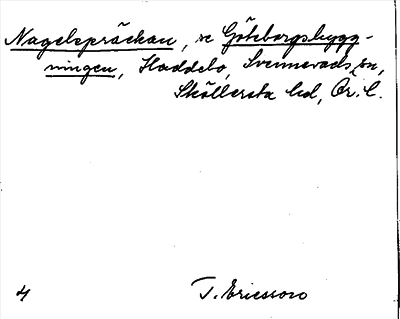 Nagelspräckan, se Göteborgsbygg-
ningen, Haddebo, Svennevads sn,
Sköllersta hd, Ör. l.
4 T. Ericsson